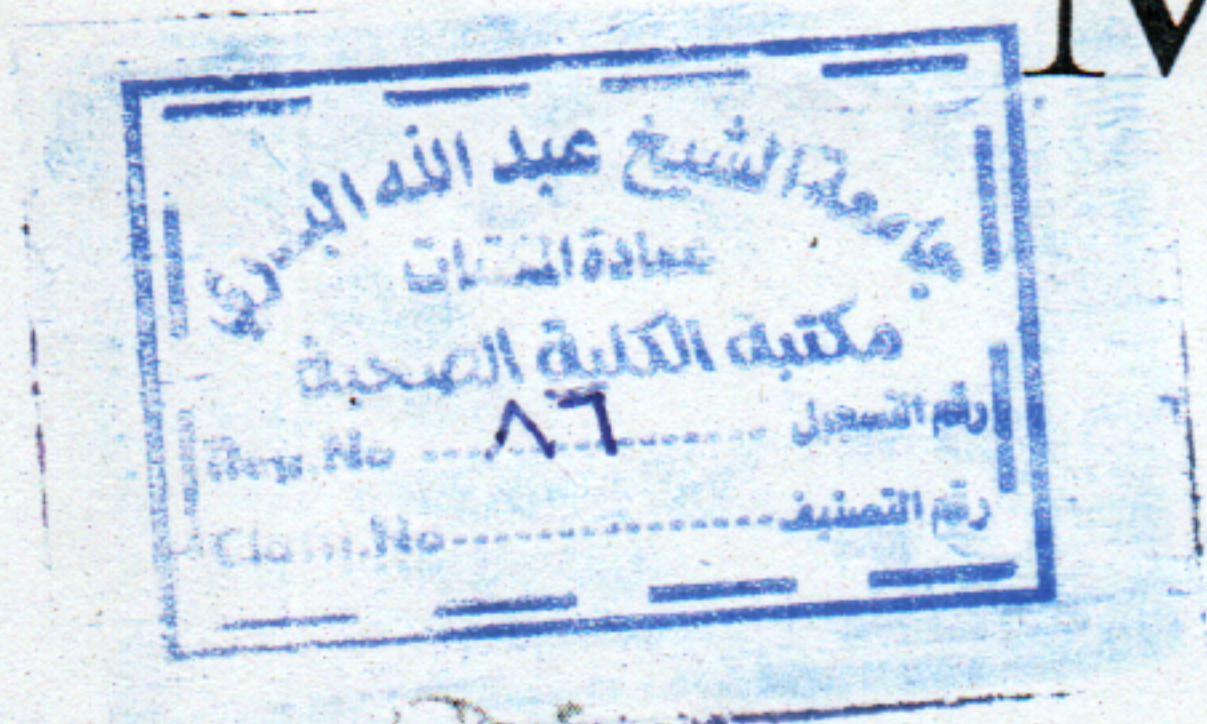 جامعة الشيخ عبد الله البدري
عمادة المكتبات
مكتبة الكلية الصحية
رقم التسجيل ٨٦ Reg.No
رقم التصنيف Class.No